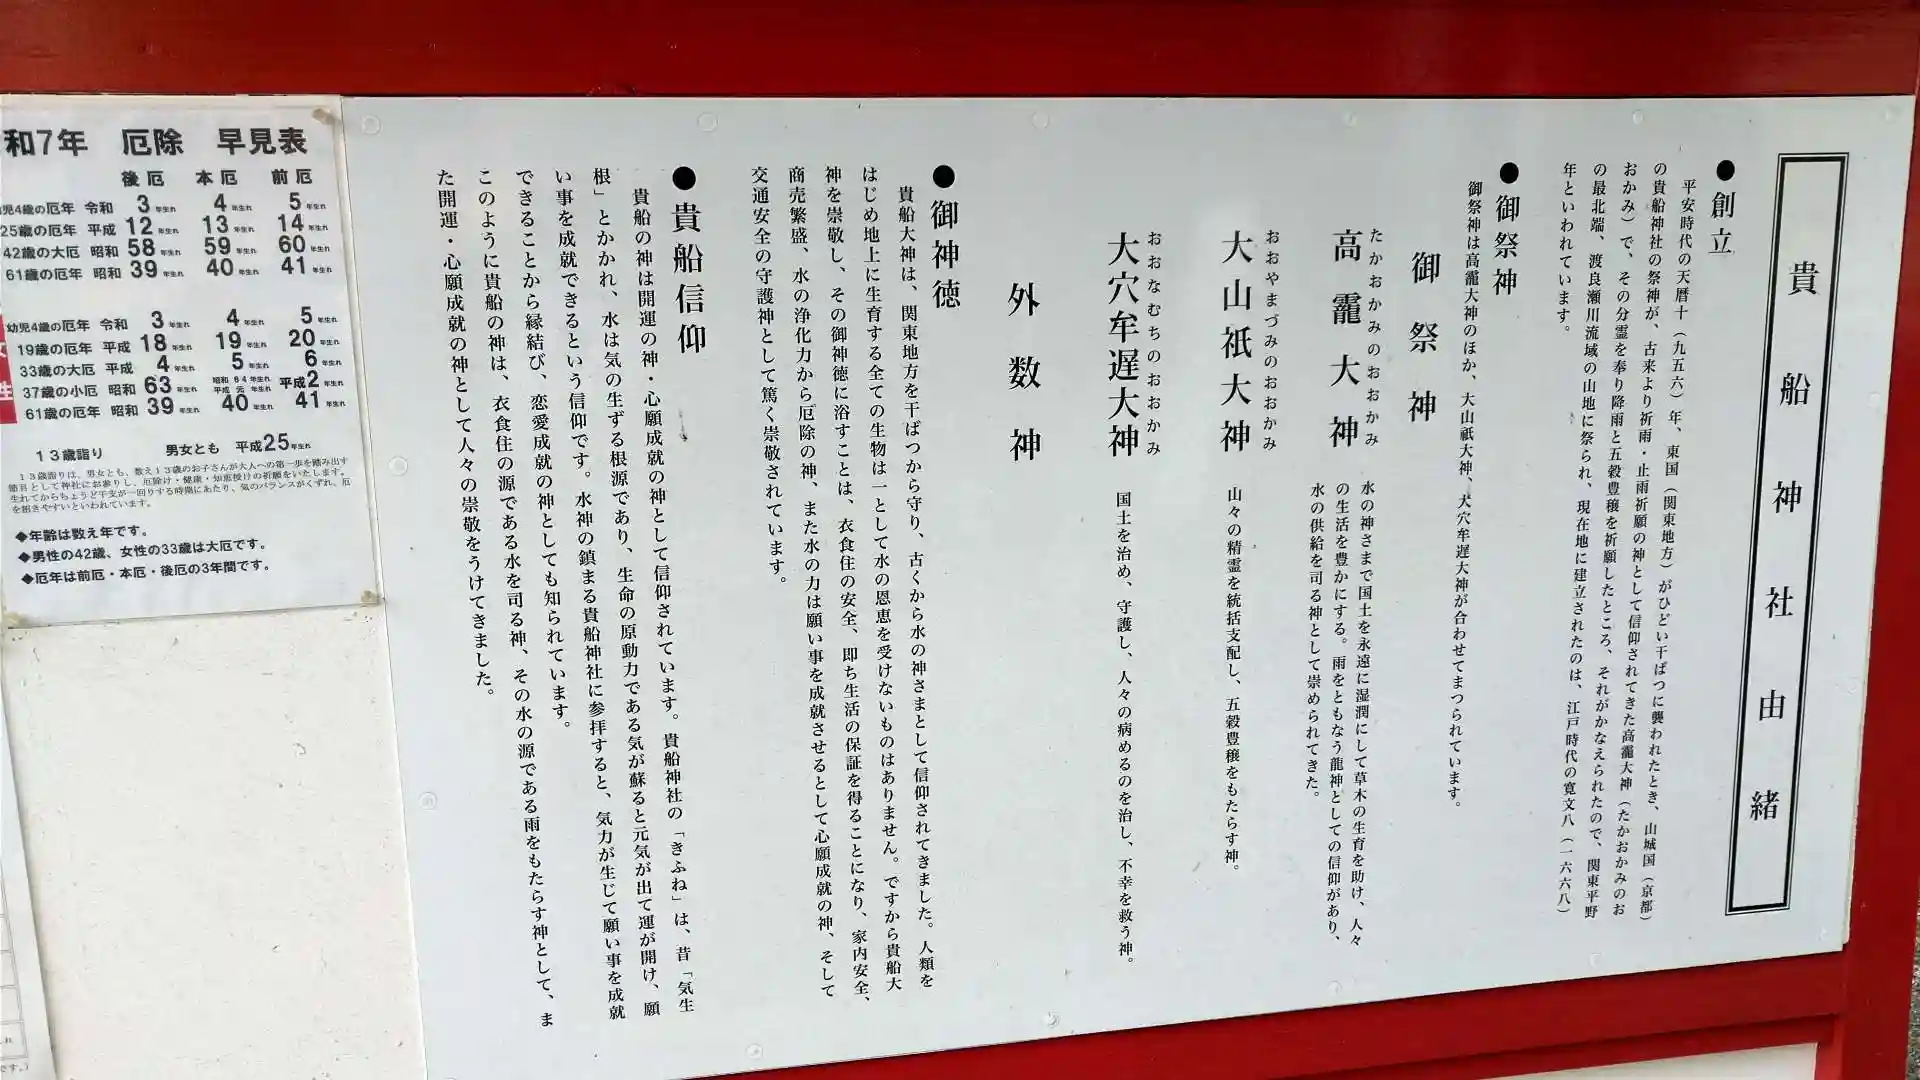 貴船神社由緒
●創立
平安時代の天暦十（九五六）年、東国（関東地方）がひどい干ばつに襲われたとき、山城国（京都）
の貴船神社の祭神が、古来より祈雨・止雨祈願の神として信仰されてきた高龗大神（たかおかみのお
おかみ）で、その分霊を奉り降雨と五穀豊穣を祈願したところ、それがかなえられたので、関東平野
の最北端、渡良瀬川流域の山地に祭られ、現在地に建立されたのは、江戸時代の寛文八（一六六八）
年といわれています。
●御祭神
御祭神は高龗大神のほか、大山祇大神、大穴牟遅大神が合わせてまつられています。
御祭神
たかおかみのおおかみ
高龗大神
水の神さまで国土を永遠に湿潤にして草木の生育を助け、人々
の生活を豊かにする。雨をともなう龍神としての信仰があり、
水の供給を司る神として崇められてきた。
おおやまづみのおおかみ
大山祇大神
山々の精霊を統括支配し、五穀豊穣をもたらす神。
おおなむちのおおかみ
大穴牟遅大神
国土を治め、守護し、人々の病めるのを治し、不幸を救う神。
外数神
●御神徳
貴船大神は、関東地方を干ばつから守り、古くから水の神さまとして信仰されてきました。人類を
はじめ地上に生育する全ての生物は一として水の恩恵を受けないものはありません。ですから貴船大
神を崇敬し、その御神徳に浴すことは、衣食住の安全、即ち生活の保証を得ることになり、家内安全、
商売繁盛、水の浄化力から厄除の神、また水の力は願い事を成就させるとして心願成就の神、そして
交通安全の守護神として篤く崇敬されています。
●貴船信仰
貴船の神は開運の神・心願成就の神として信仰されています。貴船神社の「きふね」は、昔「気生
根」とかかれ、水は気の生ずる根源であり、生命の原動力である気が蘇ると元気が出て運が開け、願
い事を成就できるという信仰です。水神の鎮まる貴船神社に参拝すると、気力が生じて願い事を成就
できることから縁結び、恋愛成就の神としても知られています。
このように貴船の神は、衣食住の源である水を司る神、その水の源である雨をもたらす神として、ま
た開運・心願成就の神として人々の崇敬をうけてきました。
和7年 厄除 早見表
後厄 本厄 前厄
児4歳の厄年 令和 3年生れ 4年生れ 5年生れ
25歳の厄年 平成 12年生れ 13年生れ 14年生れ
42歳の大厄 昭和 58年生れ 59年生れ 60年生れ
61歳の厄年 昭和 39年生れ 40年生れ 41年生れ
性
幼児4歳の厄年 令和 3年生れ 4年生れ 5年生れ
19歳の厄年 平成 18年生れ 19年生れ 20年生れ
33歳の大厄 平成 4年生れ 5年生れ 6年生れ
37歳の小厄 昭和 63年生れ 昭和64年生れ 平成元年生れ 平成2年生れ
61歳の厄年 昭和 39年生れ 40年生れ 41年生れ
13歳詣り 男女とも 平成25年生れ
13歳詣りは、男女とも、数え13歳のお子さんが大人への第一歩を踏み出す
節目として神社にお参りし、厄除け・健康・知恵授けの祈願をいたします。
生れてからちょうど干支が一回りする時期にあたり、気のバランスがくずれ、厄
を招きやすいといわれています。
◆年齢は数え年です。
◆男性の42歳、女性の33歳は大厄です。
◆厄年は前厄・本厄・後厄の3年間です。